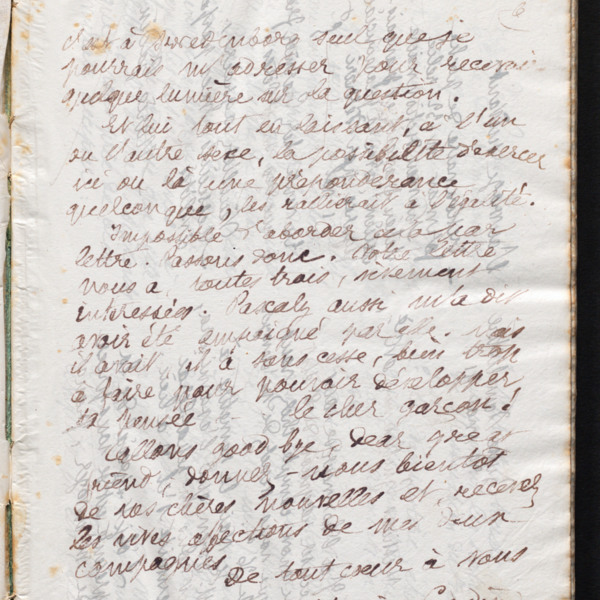 c'est à Swedenborg seul que je
pourrais m'adresser pour recevoir
quelque lumière sur la question.
Et lui tout en laissant, à l'un
ou l'autre sexe, la possibilité d'exercer
ici ou là une prépondérance
quelconque, les rallierait à l'égalité.
Impossible d'aborder cela par
lettre. Passons donc. Votre lettre
nous a, toutes trois, vivement
intéressées. Pascaly aussi m'a dit
avoir été empoigné par elle. Mais
il avait, il a sans cesse, bien trop
à faire pour pouvoir développer
sa pensée le cher garçon!
Allons good bye, dear great
friend, donnez-nous bientôt
de vos chères nouvelles et recevez
les vives affections de mes deux
compagnes
De tout cœur à vous